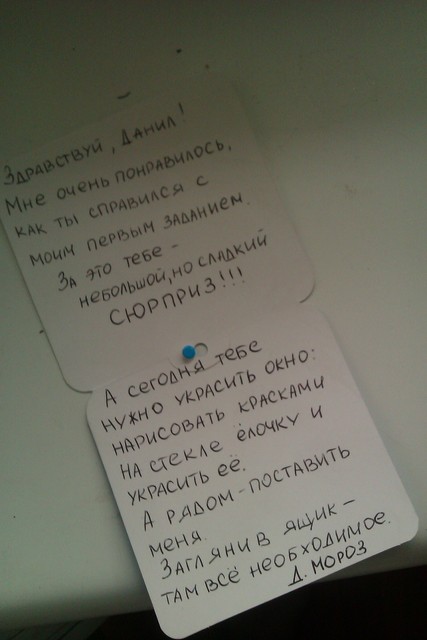 Здравствуй, Данил!
Мне очень понравилось,
как ты справился с
моим первым заданием.
За это тебе –
небольшой, но сладкий
СЮРПРИЗ!!!
А сегодня тебе
нужно украсить окно:
нарисовать красками
на стекле ёлочку и
украсить её.
А рядом – поставить
меня.
Загляни в ящик –
там всё необходимое.
Д. Мороз